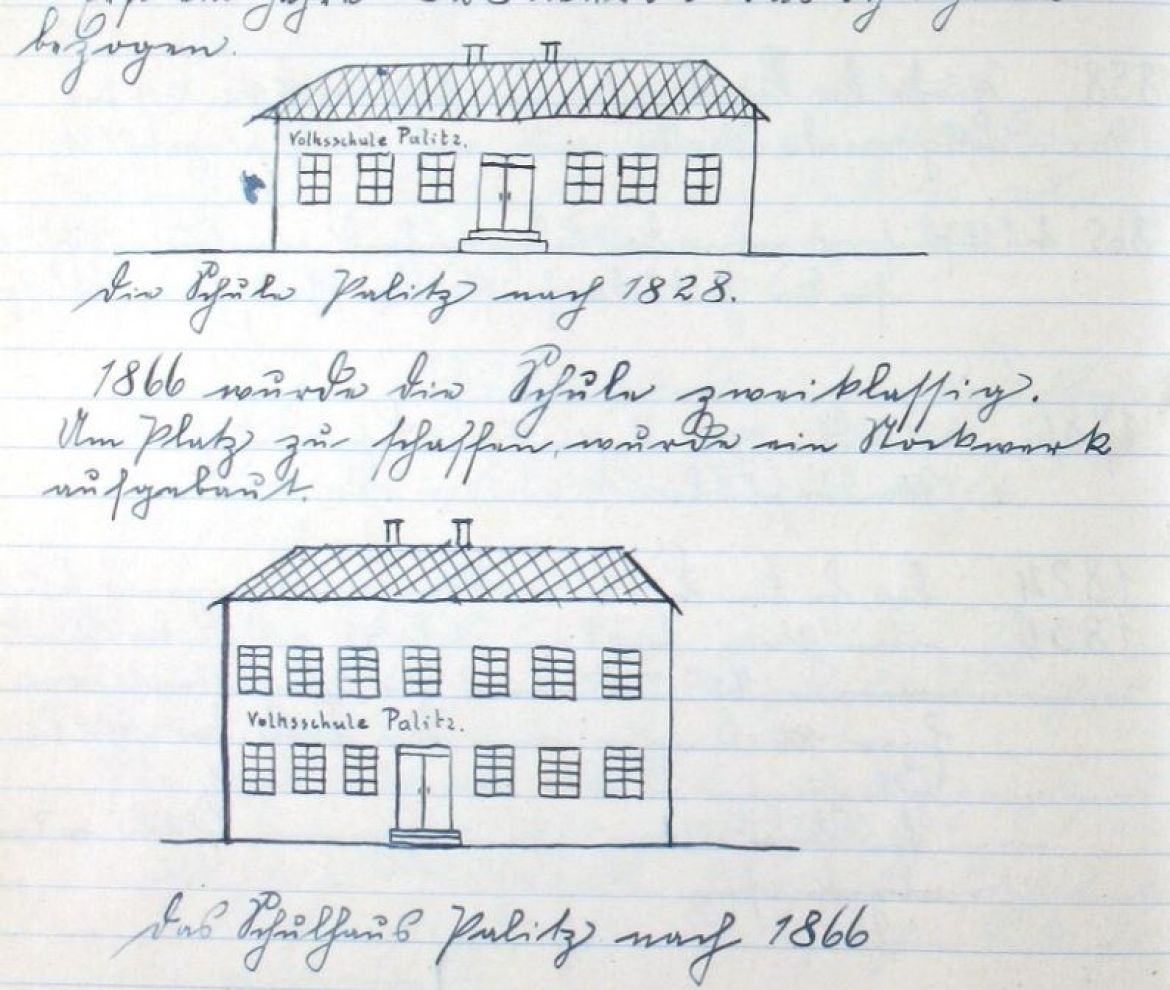 bezogen.
Volksschule Palitz.
Die Schule Palitz nach 1828.
1866 wurde die Schule zweiklassig.
Um Platz zu schaffen, wurde ein Stockwerk
aufgebaut.
Volksschule Palitz.
Das Schulhaus Palitz nach 1866